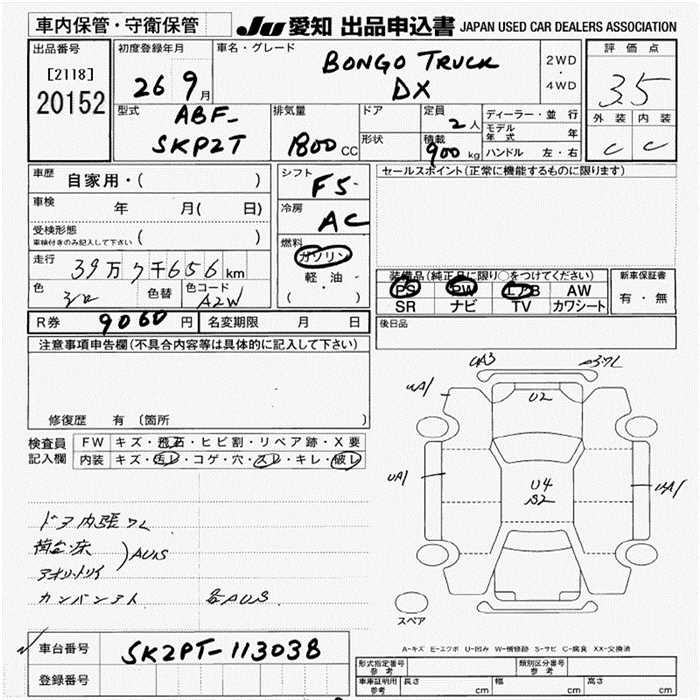 車内保管・守衛保管 JU 愛知 出品申込書 JAPAN USED CAR DEALERS ASSOCIATION
出品番号
[2118]
20152
初度登録年月
26 9月
車名・グレード
BONGO TRUCK
DX
2WD
・
4WD
評価点
3.5
外装 内装
C C
型式
ABF-
SKP2T
排気量
1800 CC
ドア
形状
定員
2人
積載
900 kg
ディーラー・並行
モデル年式 年
ハンドル 左・右
車歴 自家用・( )
車検 年 月( 日)
受検形態
車検付きのみ記入して下さい ( )
走行 39万7千656km
色 色替 色コード
A2W
シフト F5
冷房 AC
燃料
ガソリン
軽油
( )
セールスポイント(正常に機能するものに限ります)
装備品(純正品に限り○をつけてください)
PS PW エアB AW
SR ナビ TV カワシート
新車保証書
有・無
R券 9060円 名変期限 月 日
後日品
注意事項申告欄(不具合内容等は具体的に記入して下さい)
修復歴 有 (箇所 )
検査員
記入欄
FW キズ・飛石・ヒビ割・リペア跡・X要
内装 キズ・汚レ・コゲ・穴・スレ・キレ・破レ
ドア内張ワレ
荷台・床
アオリ・トリイ
)AUS
カンバンアト 各AUS
UA3
UA1
U2
UA1
U4
S2
UA1
スペア
A-キズ E-エクボ U-凹み W-補修跡 S-サビ C-腐食 XX-交換済
車台番号 SK2PT-113038
登録番号
形式指定番号
参考
類別区分番号
参考
車庫証明用
参考
長さ cm 幅 cm 高さ cm